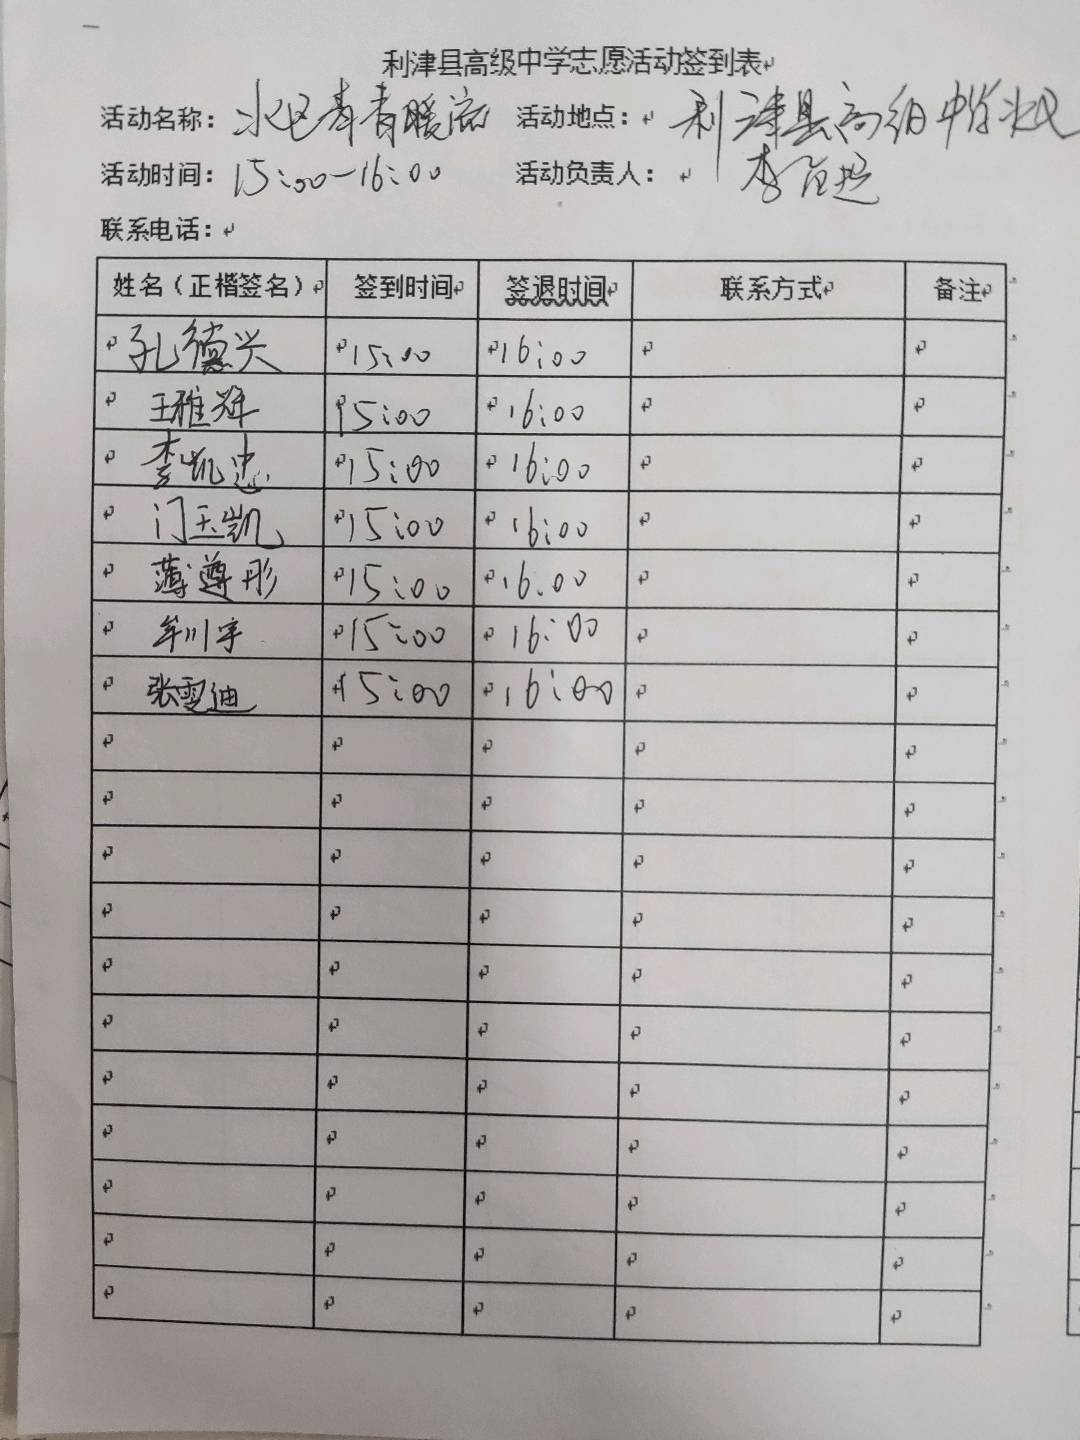 利津县高级中学志愿活动签到表
活动名称： 青春暖流 活动地点： 利津县高级中学
活动时间： 15:00-16:00 活动负责人： 李
联系电话：
姓名（正楷签名） 签到时间 签退时间 联系方式 备注
孔德兴 15:00 16:00
王雅 15:00 16:00
李凯忠 15:00 16:00
门玉凯 15:00 16:00
薄尊彤 15:00 16:00
牟川宇 15:00 16:00
张雯迪 15:00 16:00